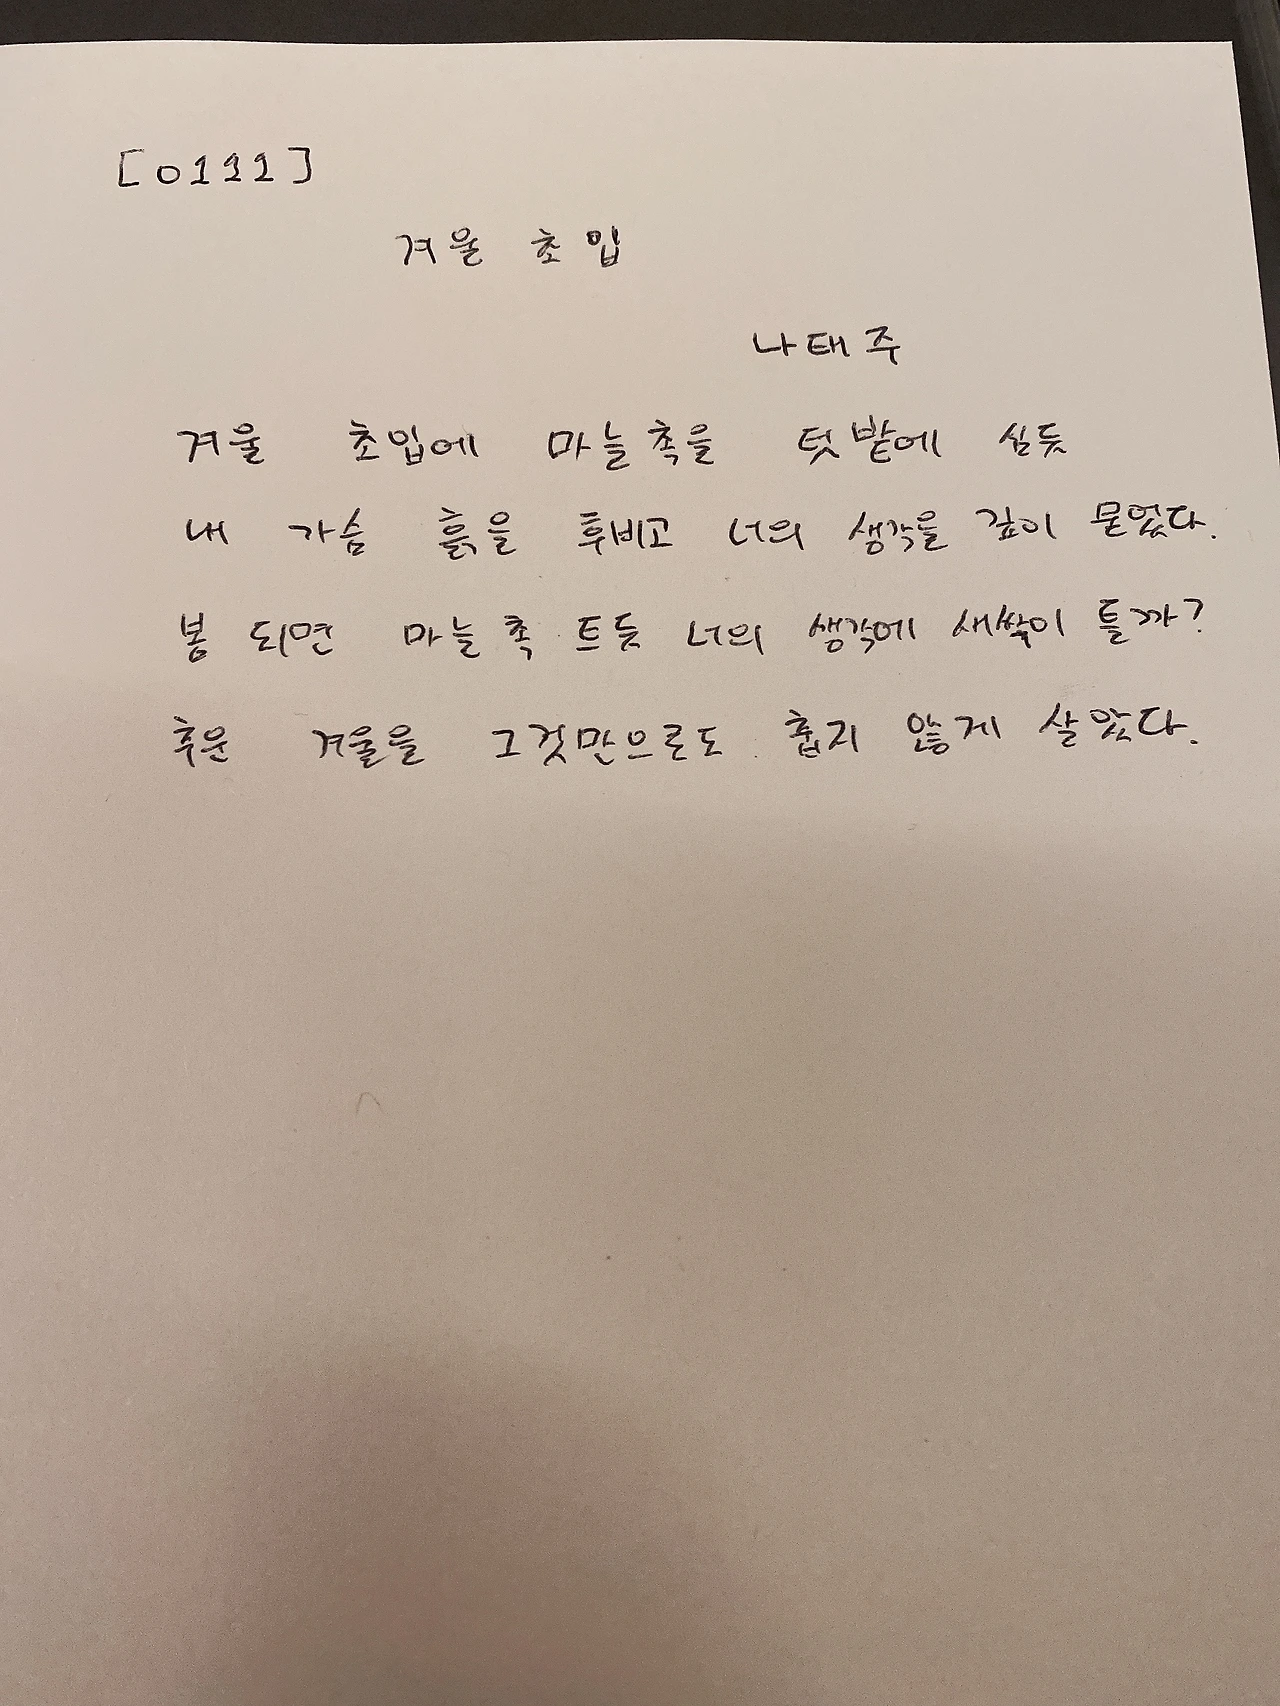 [0111]
겨울 초입
나태주
겨울 초입에 마늘촉을 텃밭에 심듯
내 가슴 흙을 후비고 너의 생각을 깊이 묻었다.
봄 되면 마늘촉 트듯 너의 생각에 새싹이 틀까?
추운 겨울을 그것만으로도 춥지 않게 살았다.